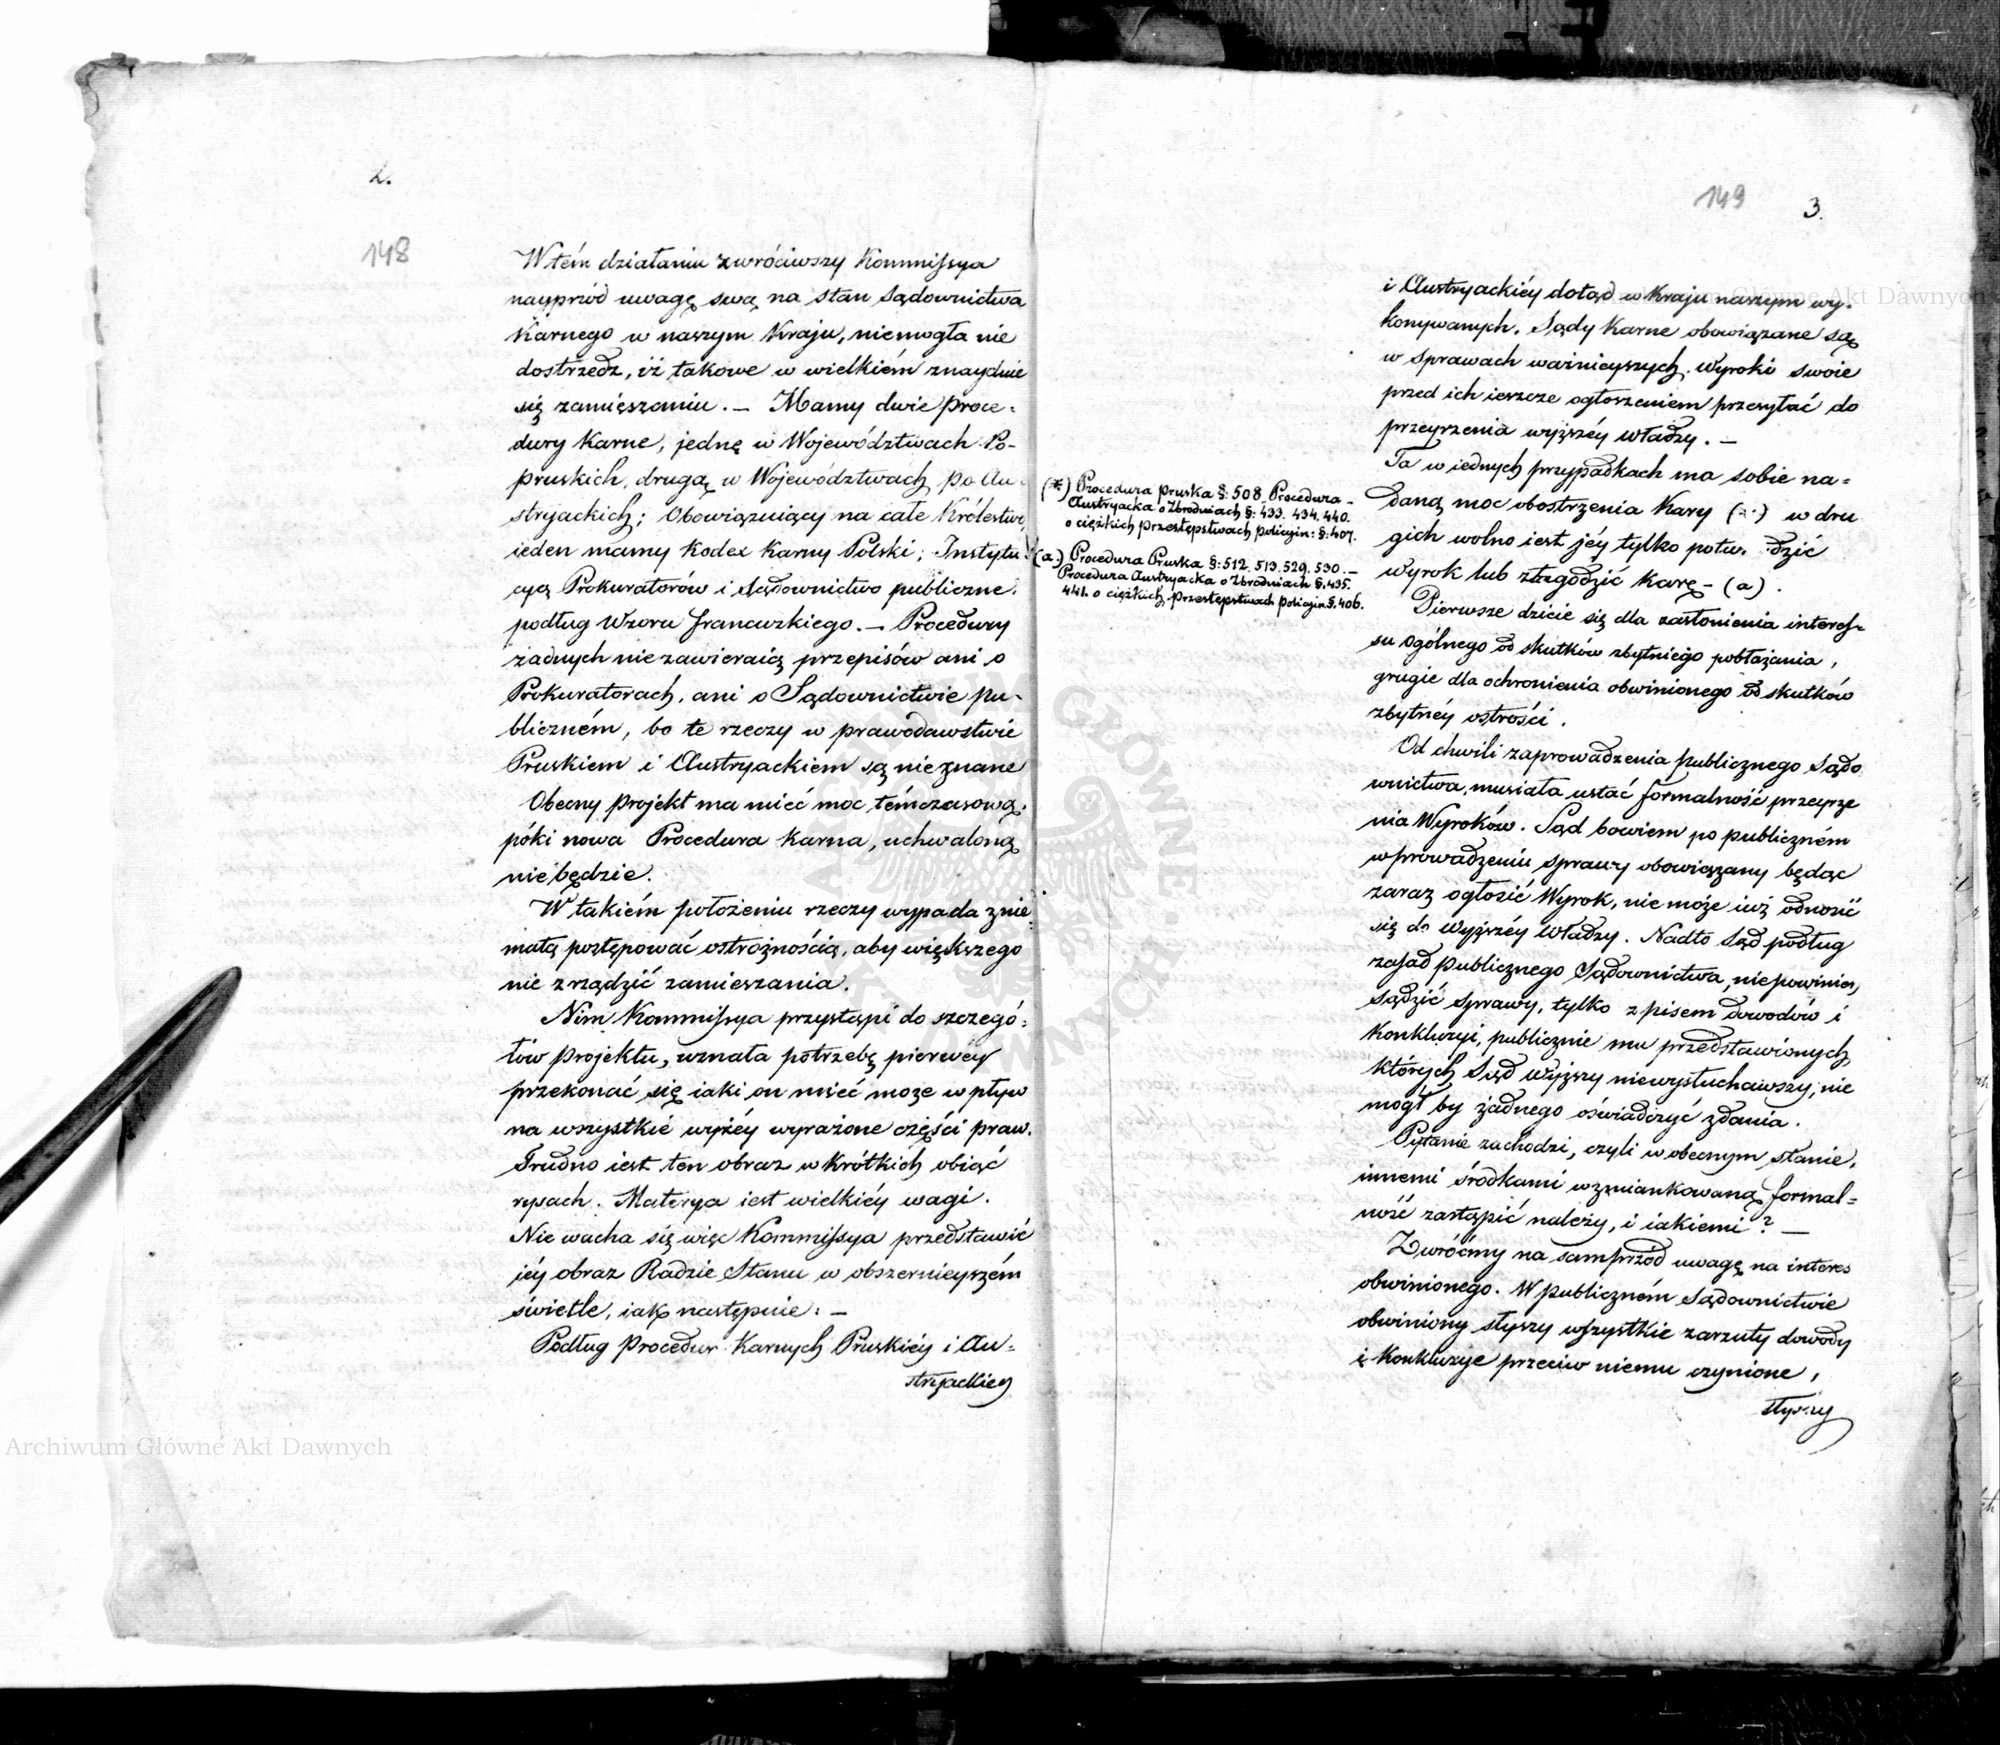 2.
148
W tém działaniu zwróciwszy Kommissya
nayprzód uwagę swą na stan Sądownictwa
Karnego w naszym Kraju, niemogła nie
dostrzedz, iż takowe w wielkiém znayduie
się zamięszaniu. — Mamy dwie Proce-
dury Karne, jednę w Województwach Po-
pruskich, drugą w Województwach po Au-
stryackich; Obowiązuiący na całe Królestwo
ieden mamy Kodex Karny Polski; Instytu-
cyą Prokuratorów i Sądownictwo publiczne
podług Wzoru francuzkiego. — Procedury
żadnych nie zawieraią przepisów ani o
Prokuratorach, ani o Sądownictwie pu-
bliczném, bo te rzeczy w prawodawstwie
Pruskiem i Austryackiem są nieznane
Obecny Projekt ma mieć moc témczasową,
póki nowa Procedura Karna, uchwaloną
nie będzie.
W takiém położeniu rzeczy wypada z nie-
małą postępować ostrożnością, aby większego
nie zrządzić zamieszania.
Nim Kommissya przystąpi do szczegó-
łów Projektu, uznała potrzebę pierwey
przekonać się iaki on mieć może wpływ
na wszystkie wyżéy wyrażone części praw.
Trudno iest ten obraz w Krótkich obiąć
rysach. Materya iest wielkiéy wagi.
Nie wacha się więc Kommissya przedstawić
iéy obraz Radzie Stanu w obszernieyszém
świetle, iak następuie: —
Podług Procedur Karnych Pruskiéy i Au-
stryackiey
149
3.
i Austryackiéy dotąd w Kraju naszym wy-
konywanych. Sądy Karne obowiązane są
w sprawach ważnieyszych Wyroki swoie
przed ich ieszcze ogłoszeniem przesyłać do
przeyrzenia wyższéy Władzy. —
Ta w iednych przypadkach ma sobie na-
daną moc obostrzenia Kary (*) w dru
gich wolno iest jéy tylko potw. dzić
wyrok lub złagodzić Karę — (a).
(*) Procedura Pruska §: 508. Procedura —
Austryacka o Zbrodniach §: 433. 434. 440.
o ciężkich przestępstwach policyin: §: 407.
(a) Procedura Pruska §: 512. 513. 529. 530. —
Procedura Austryacka o Zbrodniach §. 435.
441. o ciężkich Przestępstwach policyin §. 406.
Pierwsze dzieie się dla zasłonienia interes-
su ogólnego od skutków zbytniego pobłażania,
grugie dla ochronienia obwinionego od skutków
zbytnéy ostrości.
Od chwili zaprowadzenia publicznego Sądo
wnictwa, musiała ustać formalność przeyrze
nia Wyroków. Sąd bowiem po publiczném
wprowadzeniu sprawy obowiązany będąc
zaraz ogłosić Wyrok, nie może iuż odnosić
się do Wyższéy Władzy. Nadto Sąd podług
zasad Publicznego Sądownictwa, niepowinien
sądzić sprawy, tylko z pisem dowodów i
Konkluzyi, publicznie mu przedstawionych,
których Sąd Wyższy niewysłuchawszy, nie
mógł by żadnego oświadczyć zdania.
Pytanie zachodzi, czyli w obecnym stanie,
innemi środkami wzmiankowaną formal-
ność zastąpić należy, i iakiemi? —
Zwróćmy na samprzód uwagę na interes
obwinionego. W publiczném Sądownictwie
obwiniony słyszy wszystkie zarzuty dowody
i Konkluzye przeciw niemu czynione,
słyszy
Archiwum Główne Akt Dawnych
Archiwum Główne Akt Dawnych
ARCHIWUM GŁÓWNE AKT DAWNYCH